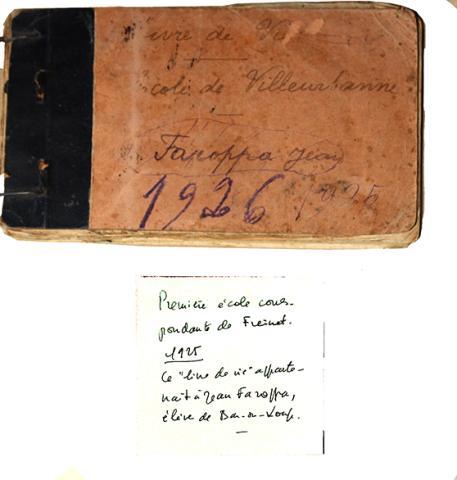 ivre de Vi
École de Villeurbanne
Faroppa Jean
1926 1925
Première école corres-
pondante de Freinet.
1925
Ce "livre de vie" apparte-
nait à Jean Faroppa,
élève de Bar-sur-Loup.